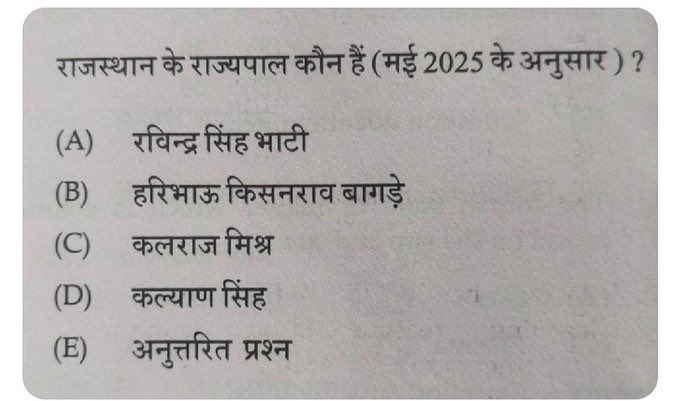 राजस्थान के राज्यपाल कौन हैं (मई 2025 के अनुसार ) ?
(A) रविन्द्र सिंह भाटी
(B) हरिभाऊ किसनराव बागड़े
(C) कलराज मिश्र
(D) कल्याण सिंह
(E) अनुत्तरित प्रश्न